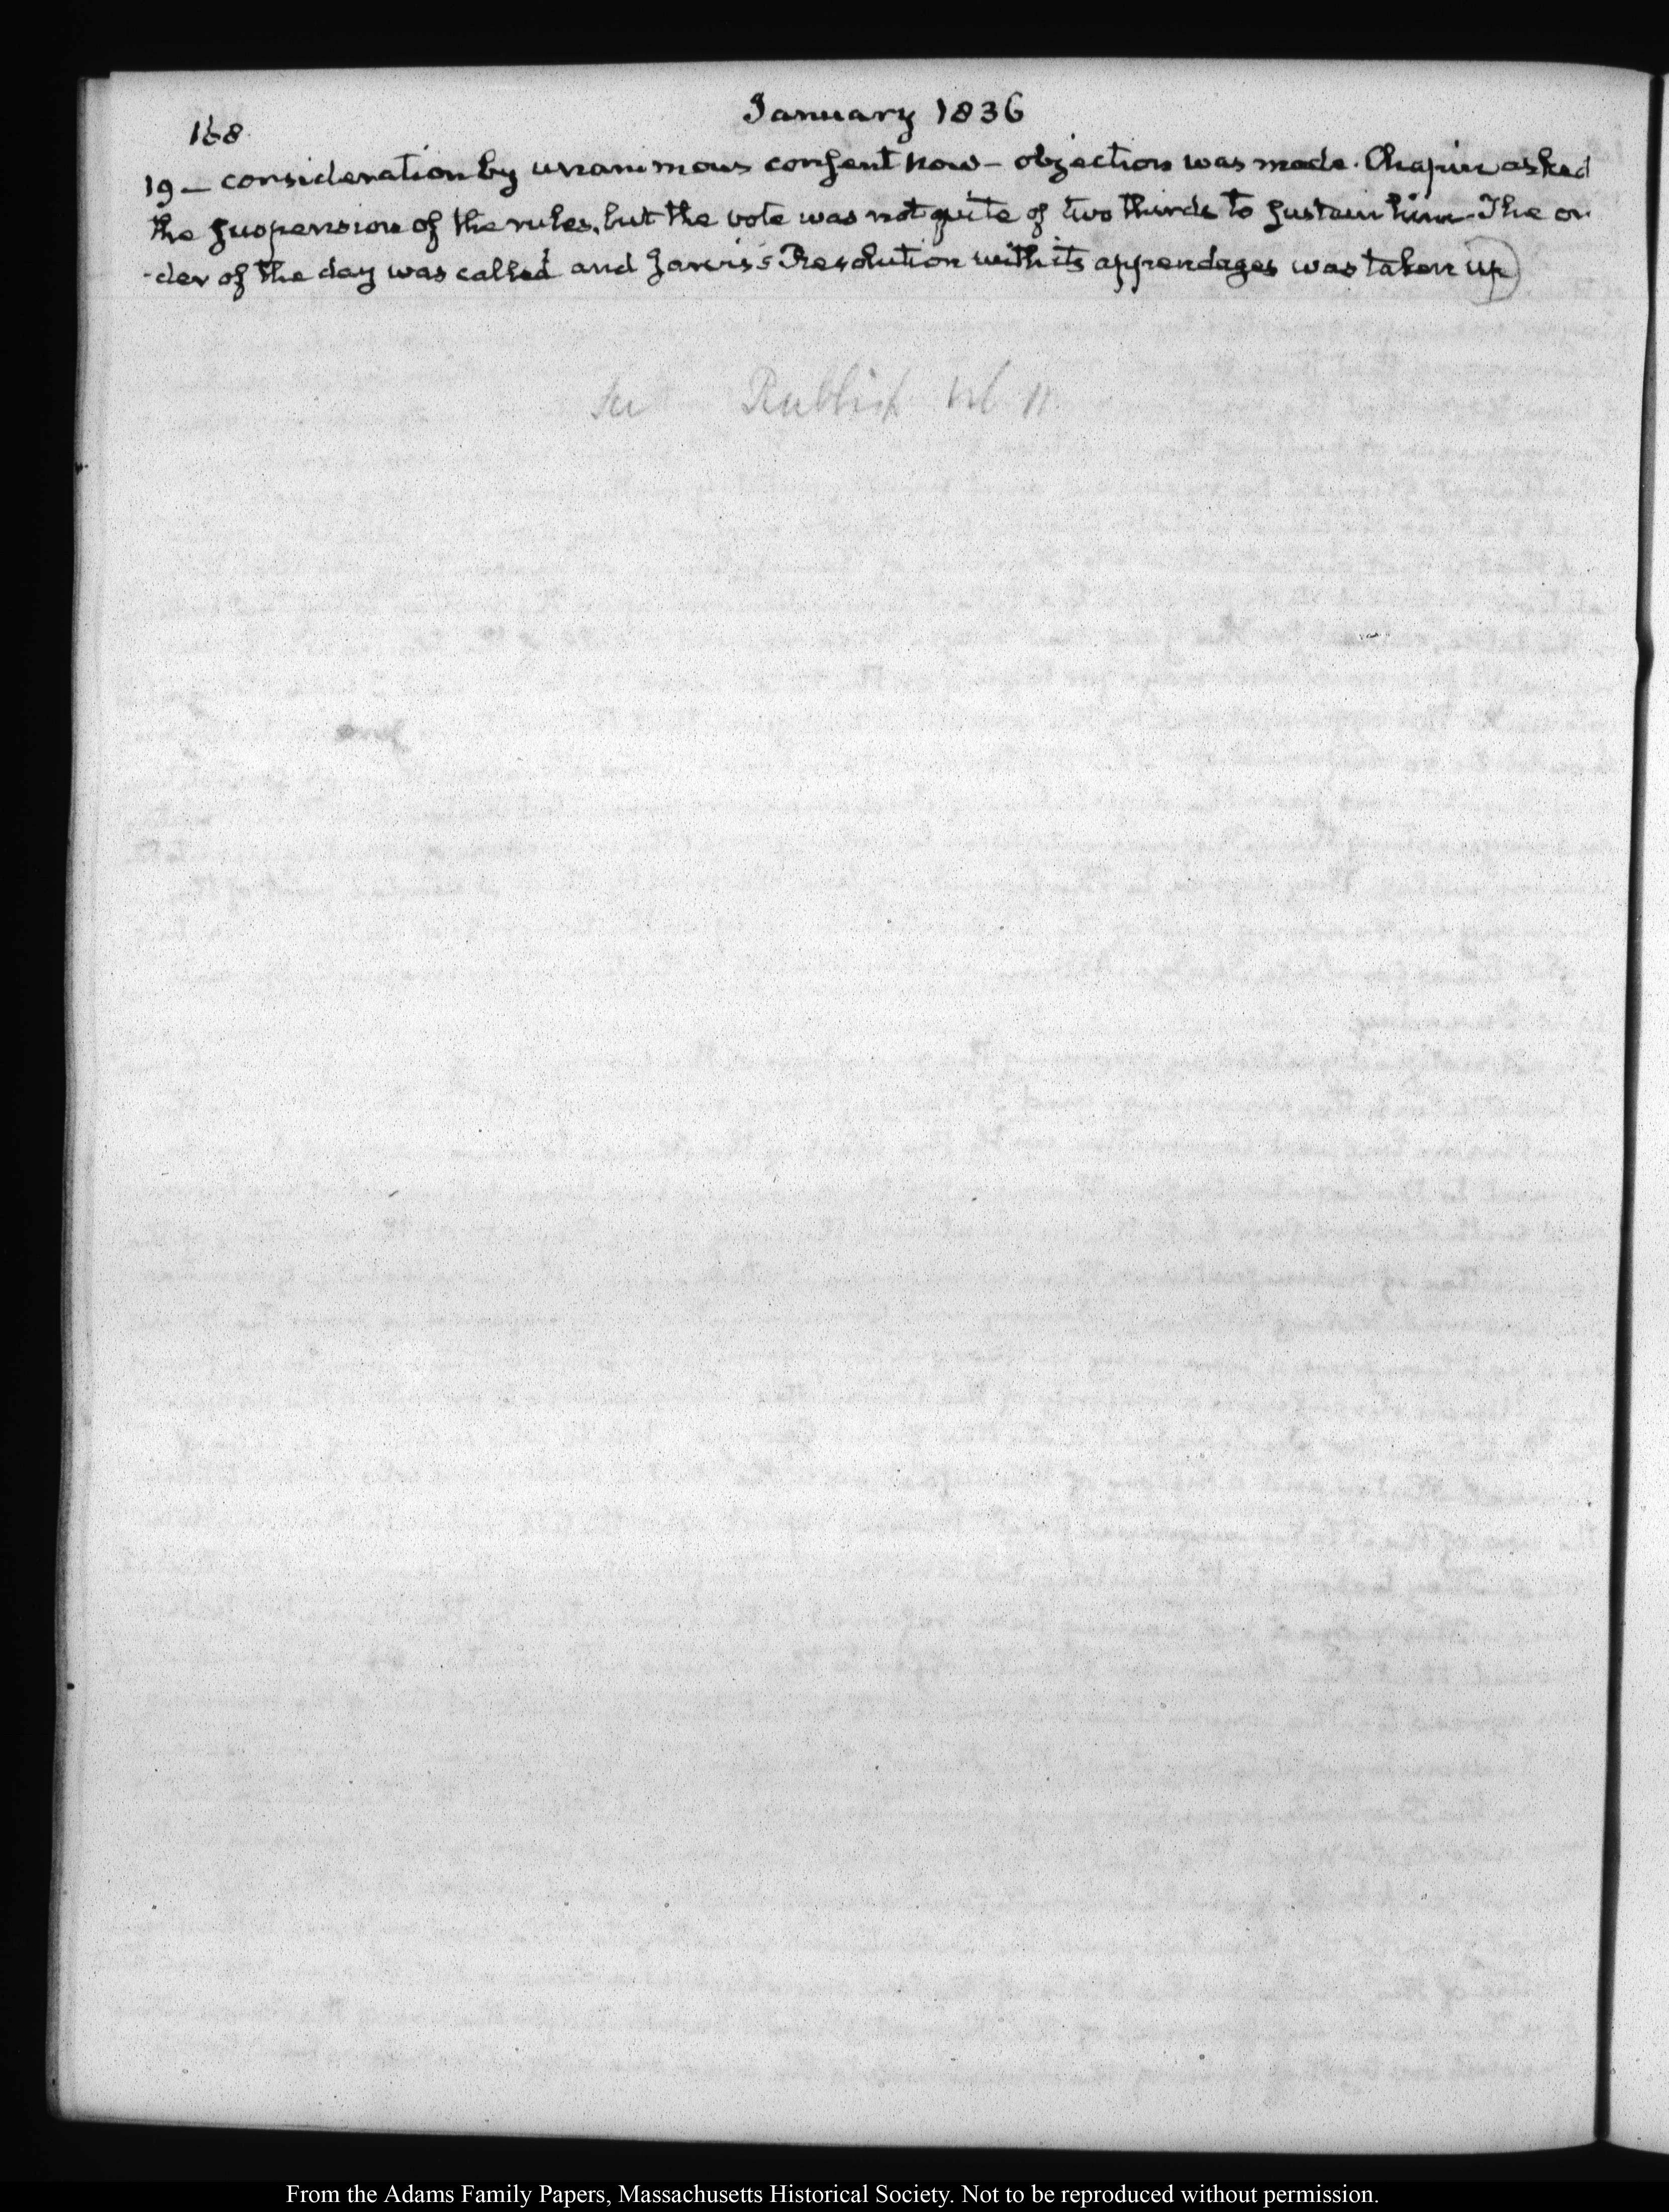 January 1836
168
19 — consideration by unanimous consent now — objection was made. Chapin asked
the suspension of the rules, but the vote was not quite of two thirds to sustain him. The or
-der of the day was called and Jarvis's Resolution with its appendages was taken up
Vol 11
From the Adams Family Papers, Massachusetts Historical Society. Not to be reproduced without permission.